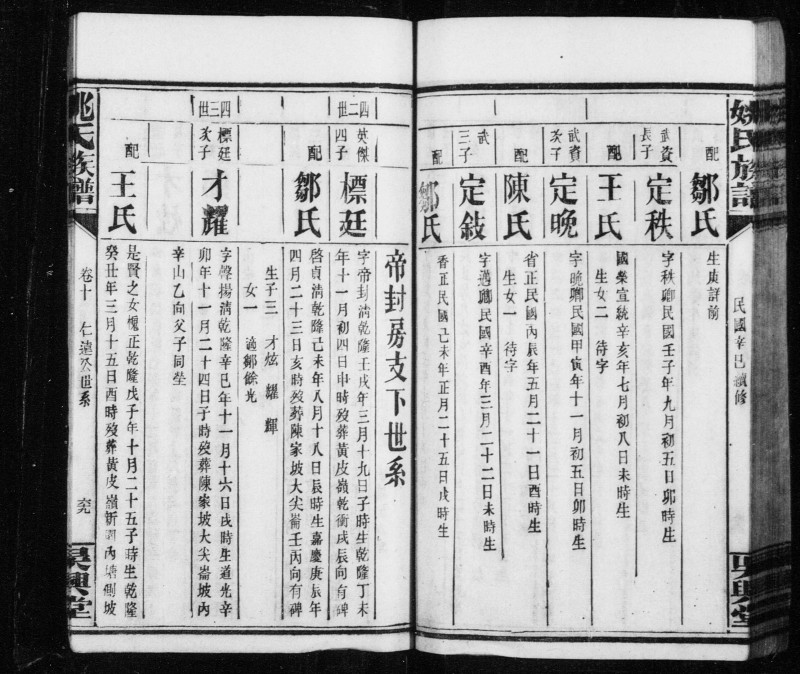 姚氏族譜
民國辛巳續修
吳興堂
配 鄒氏
生庚詳前
武資長子 定秩
字秩卿民國壬子年九月初五日卯時生
配 王氏
國榮宣統辛亥年七月初八日未時生
生女二 待字
武資次子 定晚
字晚卿民國甲寅年十一月初五日卯時生
配 陳氏
省正民國丙辰年五月二十一日酉時生
生女一 待字
武三子 定鼓
字邁卿民國辛酉年三月二十二日未時生
配 鄒氏
香正民國己未年正月二十五日戌時生
帝封房支下世系
四二世 英傑四子 標廷
字帝封清乾隆壬戌年三月十九日子時生乾隆丁未
年十一月初四日申時歿葬黃皮嶺乾衝戌辰向有碑
配 鄒氏
啓貞清乾隆己未年八月十八日辰時生嘉慶庚辰年
四月二十三日亥時歿葬陳家坡大尖崙壬丙向有碑
生子三 才炫 耀 輝
女一 適鄒餘光
四三世 標廷次子 才耀
字聲揚清乾隆辛巳年十一月十六日戌時生道光辛
卯年十一月二十四日子時歿葬陳家坡大尖崙坡內
辛山乙向父子同塋
配 王氏
是賢之女媿正乾隆戊子年十月二十五子時生乾隆
癸丑年三月十五日酉時歿葬黃皮嶺新園內塘側坡
姚氏族譜
卷十 仁遠公世系
吳興堂